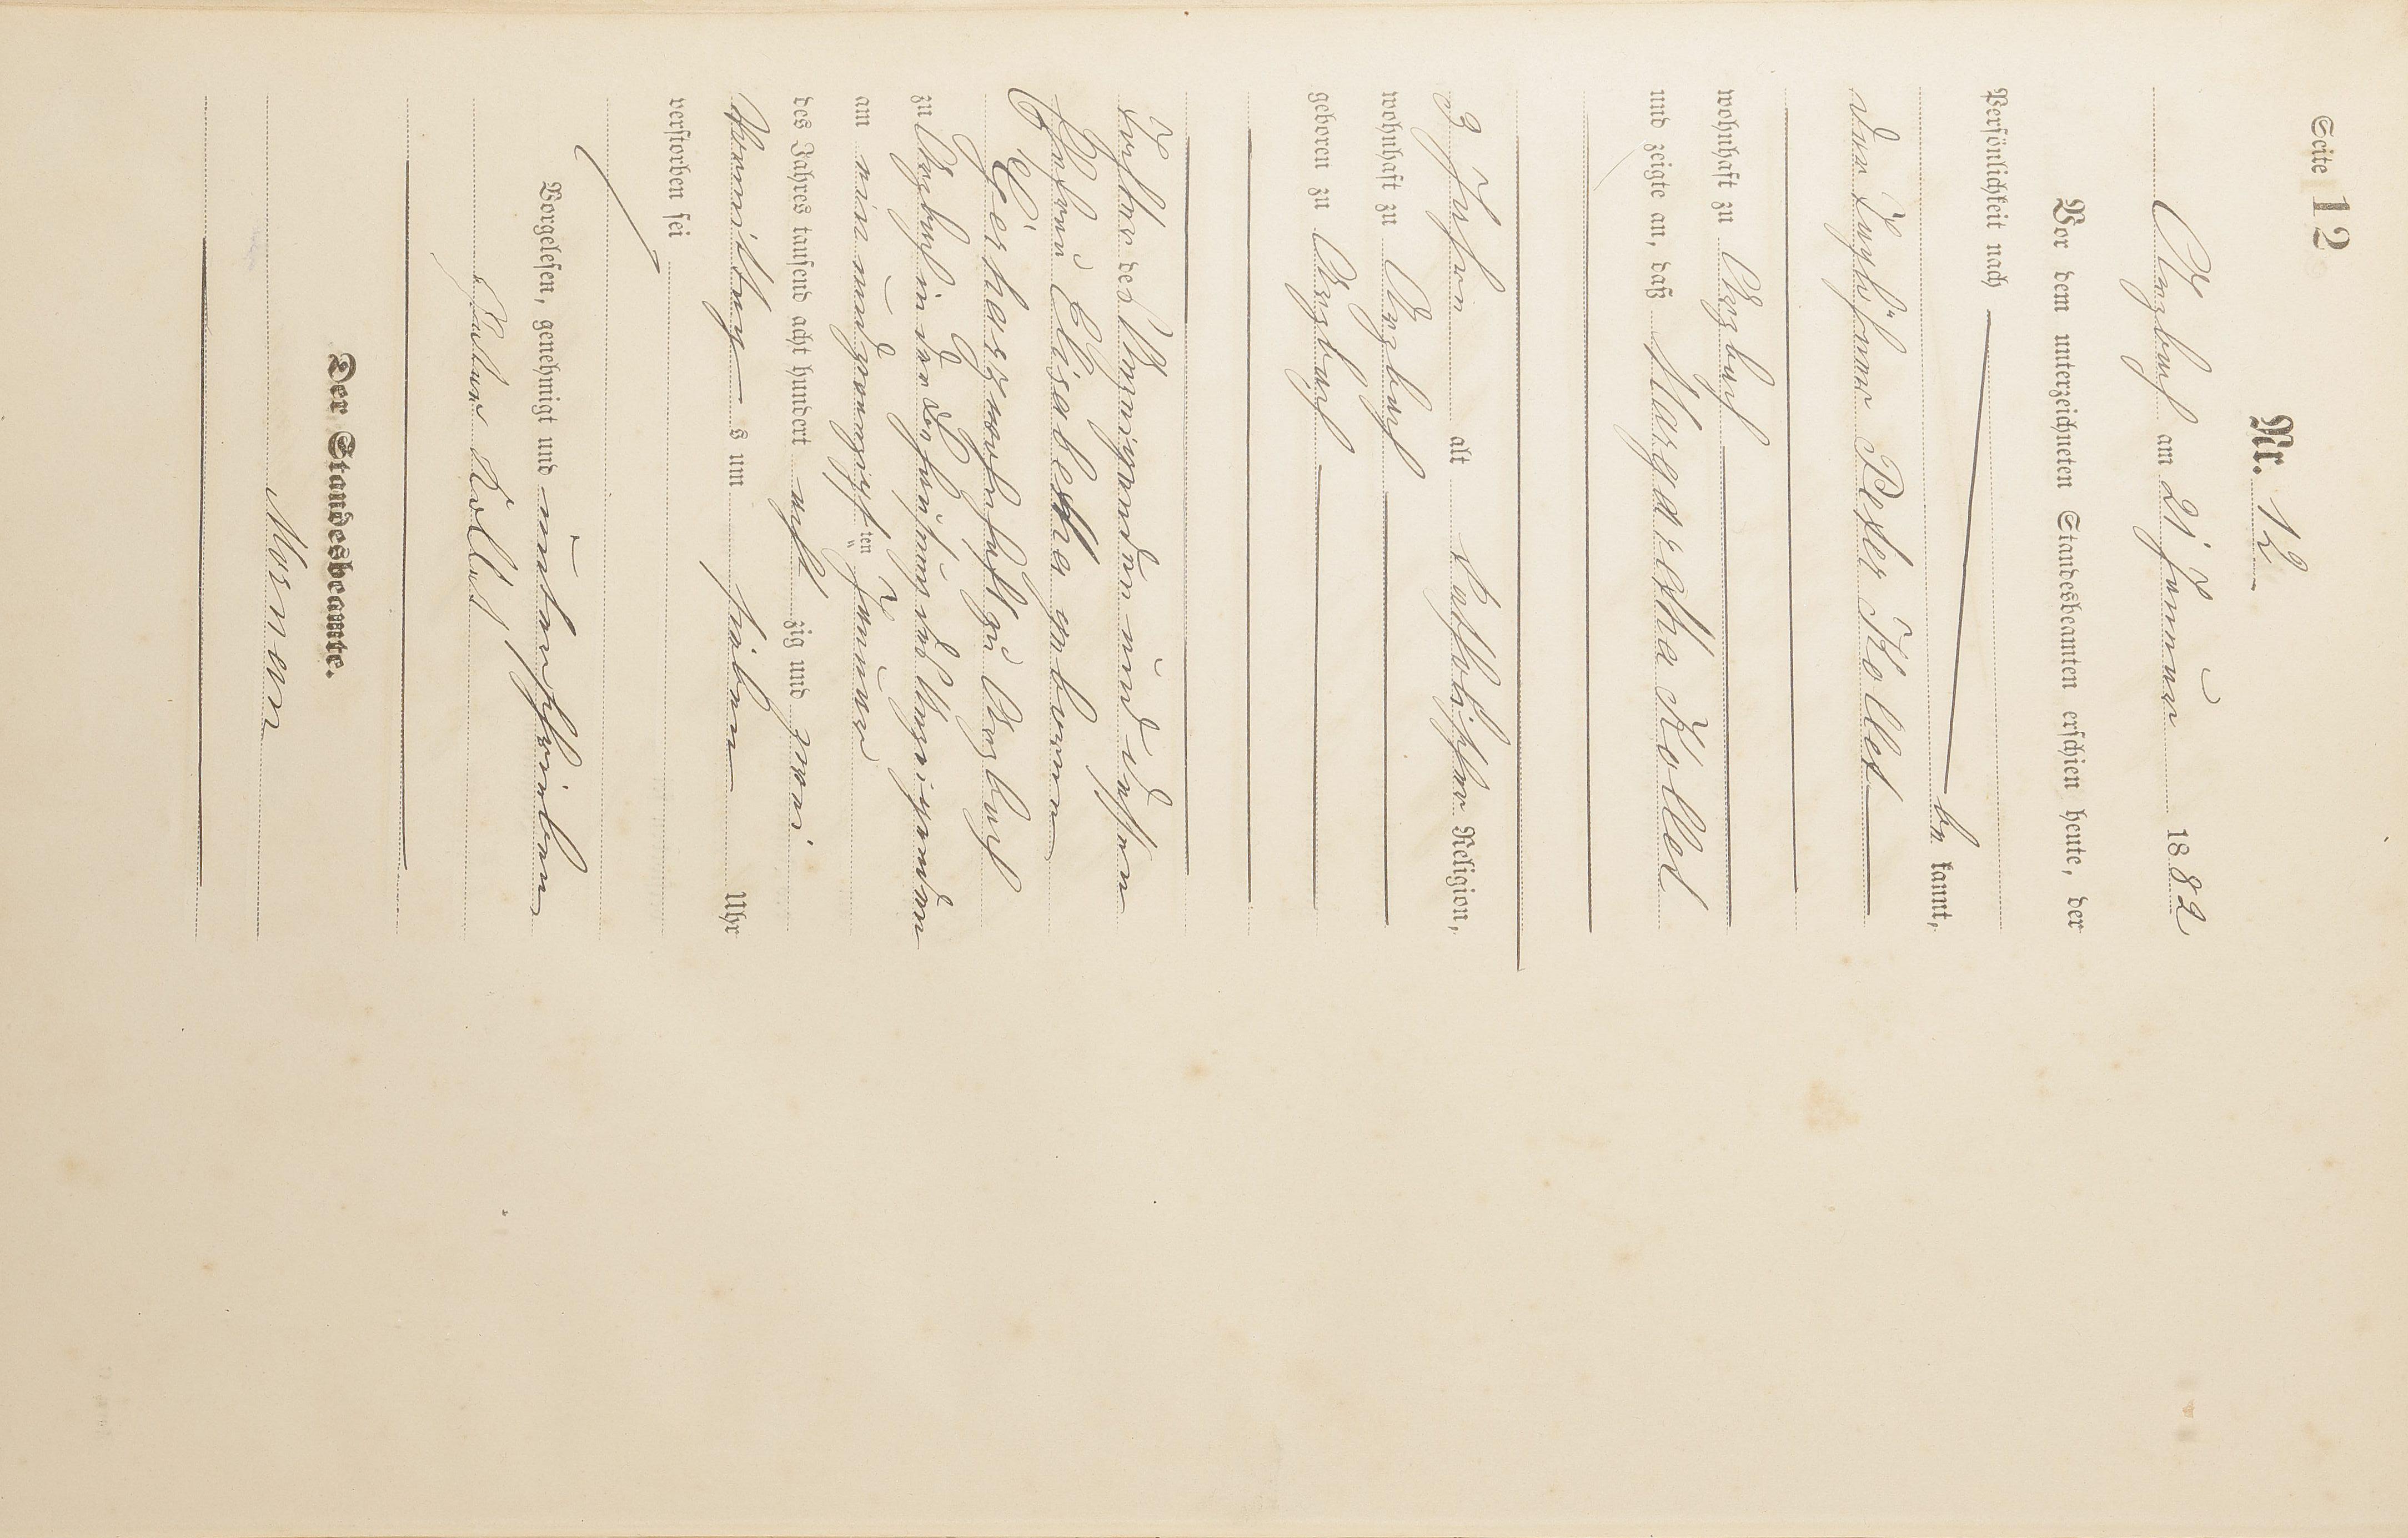 Seite 12
Nr. 12
Arzbach am 21 Januar 1882
Vor dem unterzeichneten Standesbeamten erschien heute, der
Persönlichkeit nach
be kannt,
der Taglöhner Peter Kollet
wohnhaft zu Arzbach
und zeigte an, daß Margaretha Kollet
3 Jahre alt katholischer Religion,
wohnhaft zu Arzbach
geboren zu Arzbach
Tochter des Anzeigenden und dessen
Ehefrau Elisabetha geborene
wohnhaft zu Arzbach
zu Arzbach in der Behausung des Anzeigenden
am ein und zwanzigsten Januar
des Jahres tausend acht hundert acht zig und zwei
Vormittag s um sieben Uhr
verstorben sei
Vorgelesen, genehmigt und unterschrieben
Peter Kollet
Der Standesbeamte.